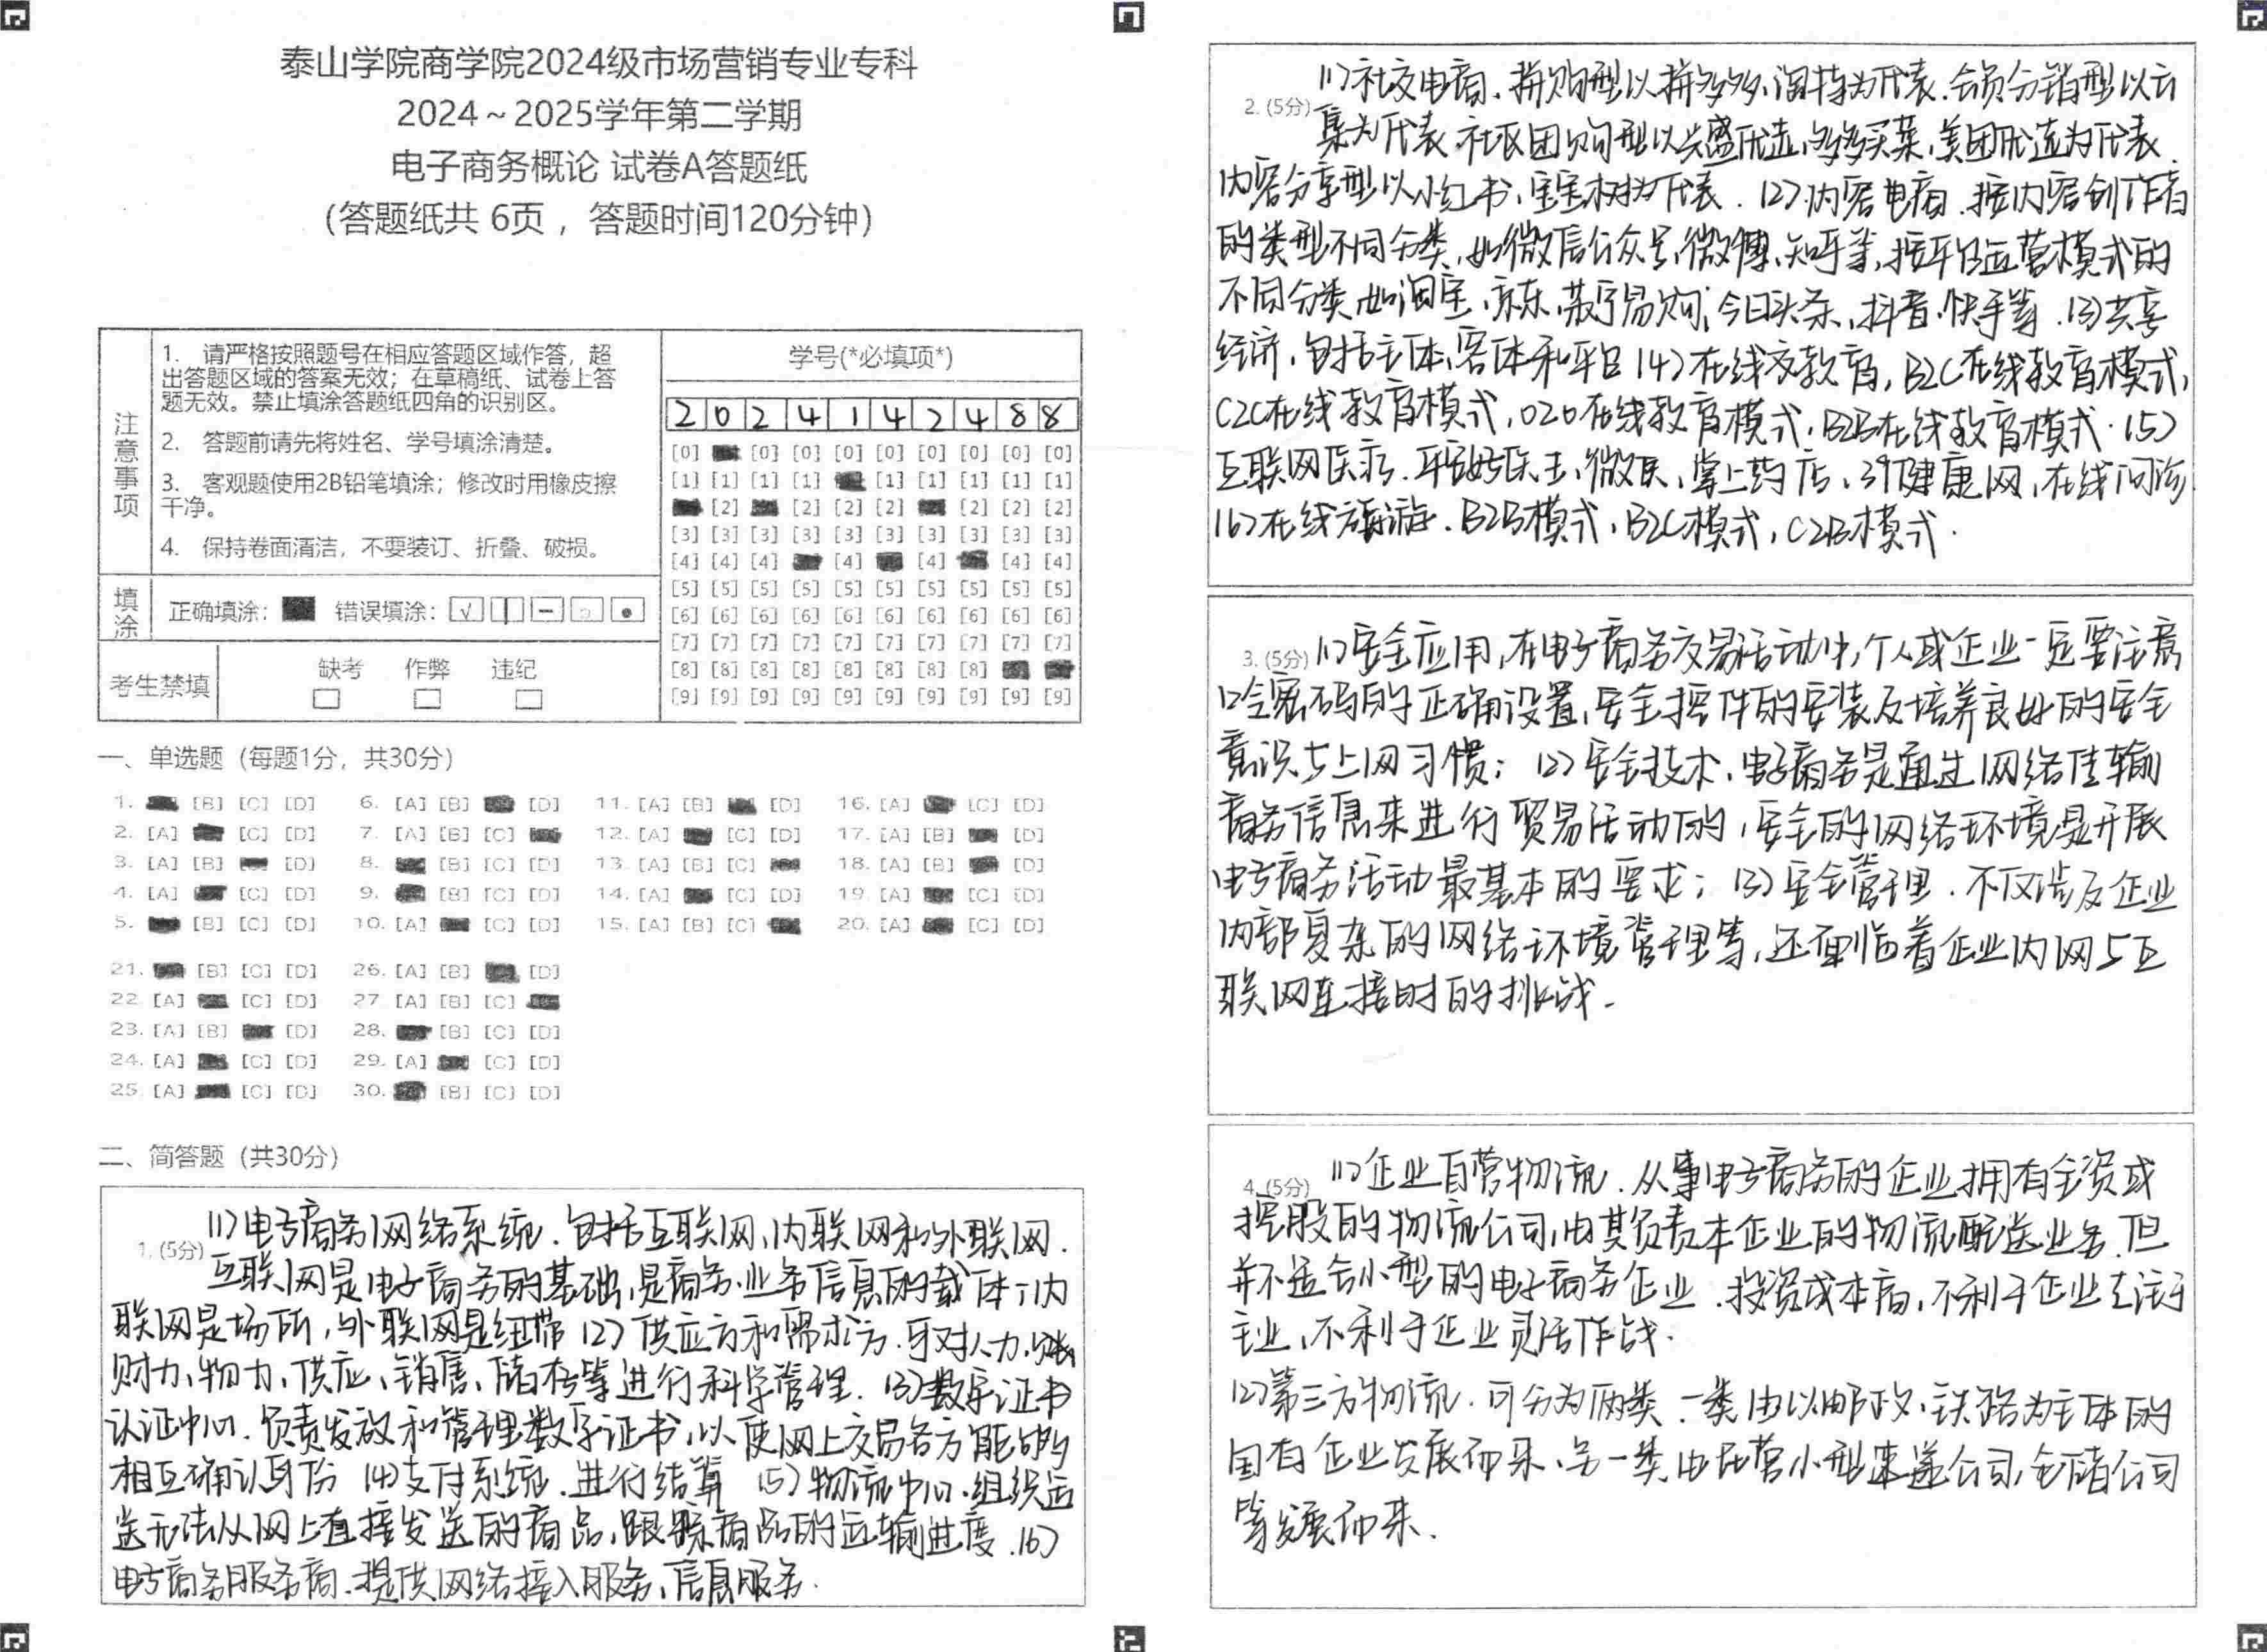 泰山学院商学院2024级市场营销专业专科
2024～2025学年第二学期
电子商务概论 试卷A答题纸
（答题纸共 6页 ，答题时间120分钟）
注意事项
1. 请严格按照题号在相应答题区域作答，超
出答题区域的答案无效；在草稿纸、试卷上答
题无效。禁止填涂答题纸四角的识别区。
2. 答题前请先将姓名、学号填涂清楚。
3. 客观题使用2B铅笔填涂；修改时用橡皮擦
干净。
4. 保持卷面清洁，不要装订、折叠、破损。
填涂 正确填涂： 错误填涂：
考生禁填 缺考 作弊 违纪
学号(*必填项*)
2 0 2 4 1 4 2 4 8 8
[0] [0] [0] [0] [0] [0] [0] [0] [0]
[1] [1] [1] [1] [1] [1] [1] [1] [1]
[2] [2] [2] [2] [2] [2] [2]
[3] [3] [3] [3] [3] [3] [3] [3] [3] [3]
[4] [4] [4] [4] [4] [4] [4]
[5] [5] [5] [5] [5] [5] [5] [5] [5] [5]
[6] [6] [6] [6] [6] [6] [6] [6] [6] [6]
[7] [7] [7] [7] [7] [7] [7] [7] [7] [7]
[8] [8] [8] [8] [8] [8] [8] [8]
[9] [9] [9] [9] [9] [9] [9] [9] [9] [9]
一、单选题（每题1分，共30分）
1. [B] [C] [D] 6. [A] [B] [D] 11. [A] [B] [D] 16. [A] [C] [D]
2. [A] [C] [D] 7. [A] [B] [C] 12. [A] [C] [D] 17. [A] [B] [D]
3. [A] [B] [D] 8. [B] [C] [D] 13. [A] [B] [C] 18. [A] [B] [D]
4. [A] [C] [D] 9. [B] [C] [D] 14. [A] [C] [D] 19. [A] [C] [D]
5. [B] [C] [D] 10. [A] [C] [D] 15. [A] [B] [C] 20. [A] [C] [D]
21. [B] [C] [D] 26. [A] [B] [D]
22. [A] [C] [D] 27. [A] [B] [C]
23. [A] [B] [D] 28. [B] [C] [D]
24. [A] [C] [D] 29. [A] [C] [D]
25. [A] [C] [D] 30. [B] [C] [D]
二、简答题（共30分）
1. (5分) (1)电子商务网络系统.包括互联网、内联网和外联网.
互联网是电子商务的基础,是商务、业务信息的载体;内
联网是场所,外联网是纽带 (2)供应方和需求方.可对人力、
财力、物力、供应、销售、储存等进行科学管理. (3)数字证书
认证中心.负责发放和管理数字证书,以使网上交易各方能够
相互确认身份 (4)支付系统.进行结算 (5)物流中心.组织运
送无法从网上直接发送的商品,跟踪商品的运输进度.(6)
电子商务服务商.提供网络接入服务、信息服务.
2. (5分) (1)社交电商.拼购型以拼多多、淘特为代表.会员分销型以云
集为代表.社区团购型以兴盛优选,多多买菜,美团优选为代表.
内容分享型以小红书、宝宝树为代表. (2)内容电商.按内容创作者
的类型不同分类,如微信公众号,微博、知乎等,按平台运营模式的
不同分类,如淘宝、京东、苏宁易购;今日头条、抖音、快手等.(3)共享
经济,包括主体,客体和平台 (4)在线教育,B2C在线教育模式,
C2C在线教育模式,O2O在线教育模式,B2B在线教育模式.(5)
互联网医疗.平安好医生,微医,掌上药店,39健康网,在线问诊
(6)在线旅游.B2B模式,B2C模式,C2B模式.
3. (5分) (1)安全应用,在电子商务交易活动中,个人或企业一定要注意
口令密码的正确设置,安全控件的安装及培养良好的安全
意识与上网习惯; (2)安全技术.电子商务是通过网络传输
商务信息来进行贸易活动的,安全的网络环境是开展
电子商务活动最基本的要求; (3)安全管理.不仅涉及企业
内部复杂的网络环境管理等,还面临着企业内网与互
联网连接时的挑战.
4. (5分) (1)企业自营物流.从事电子商务的企业拥有全资或
控股的物流公司,由其负责本企业的物流配送业务.但
并不适合小型的电子商务企业.投资成本高,不利于企业专注于
主业,不利于企业灵活作战.
(2)第三方物流.可分为两类.一类由以邮政、铁路为主体的
国有企业发展而来,另一类由民营小型速递公司,仓储公司
等发展而来.